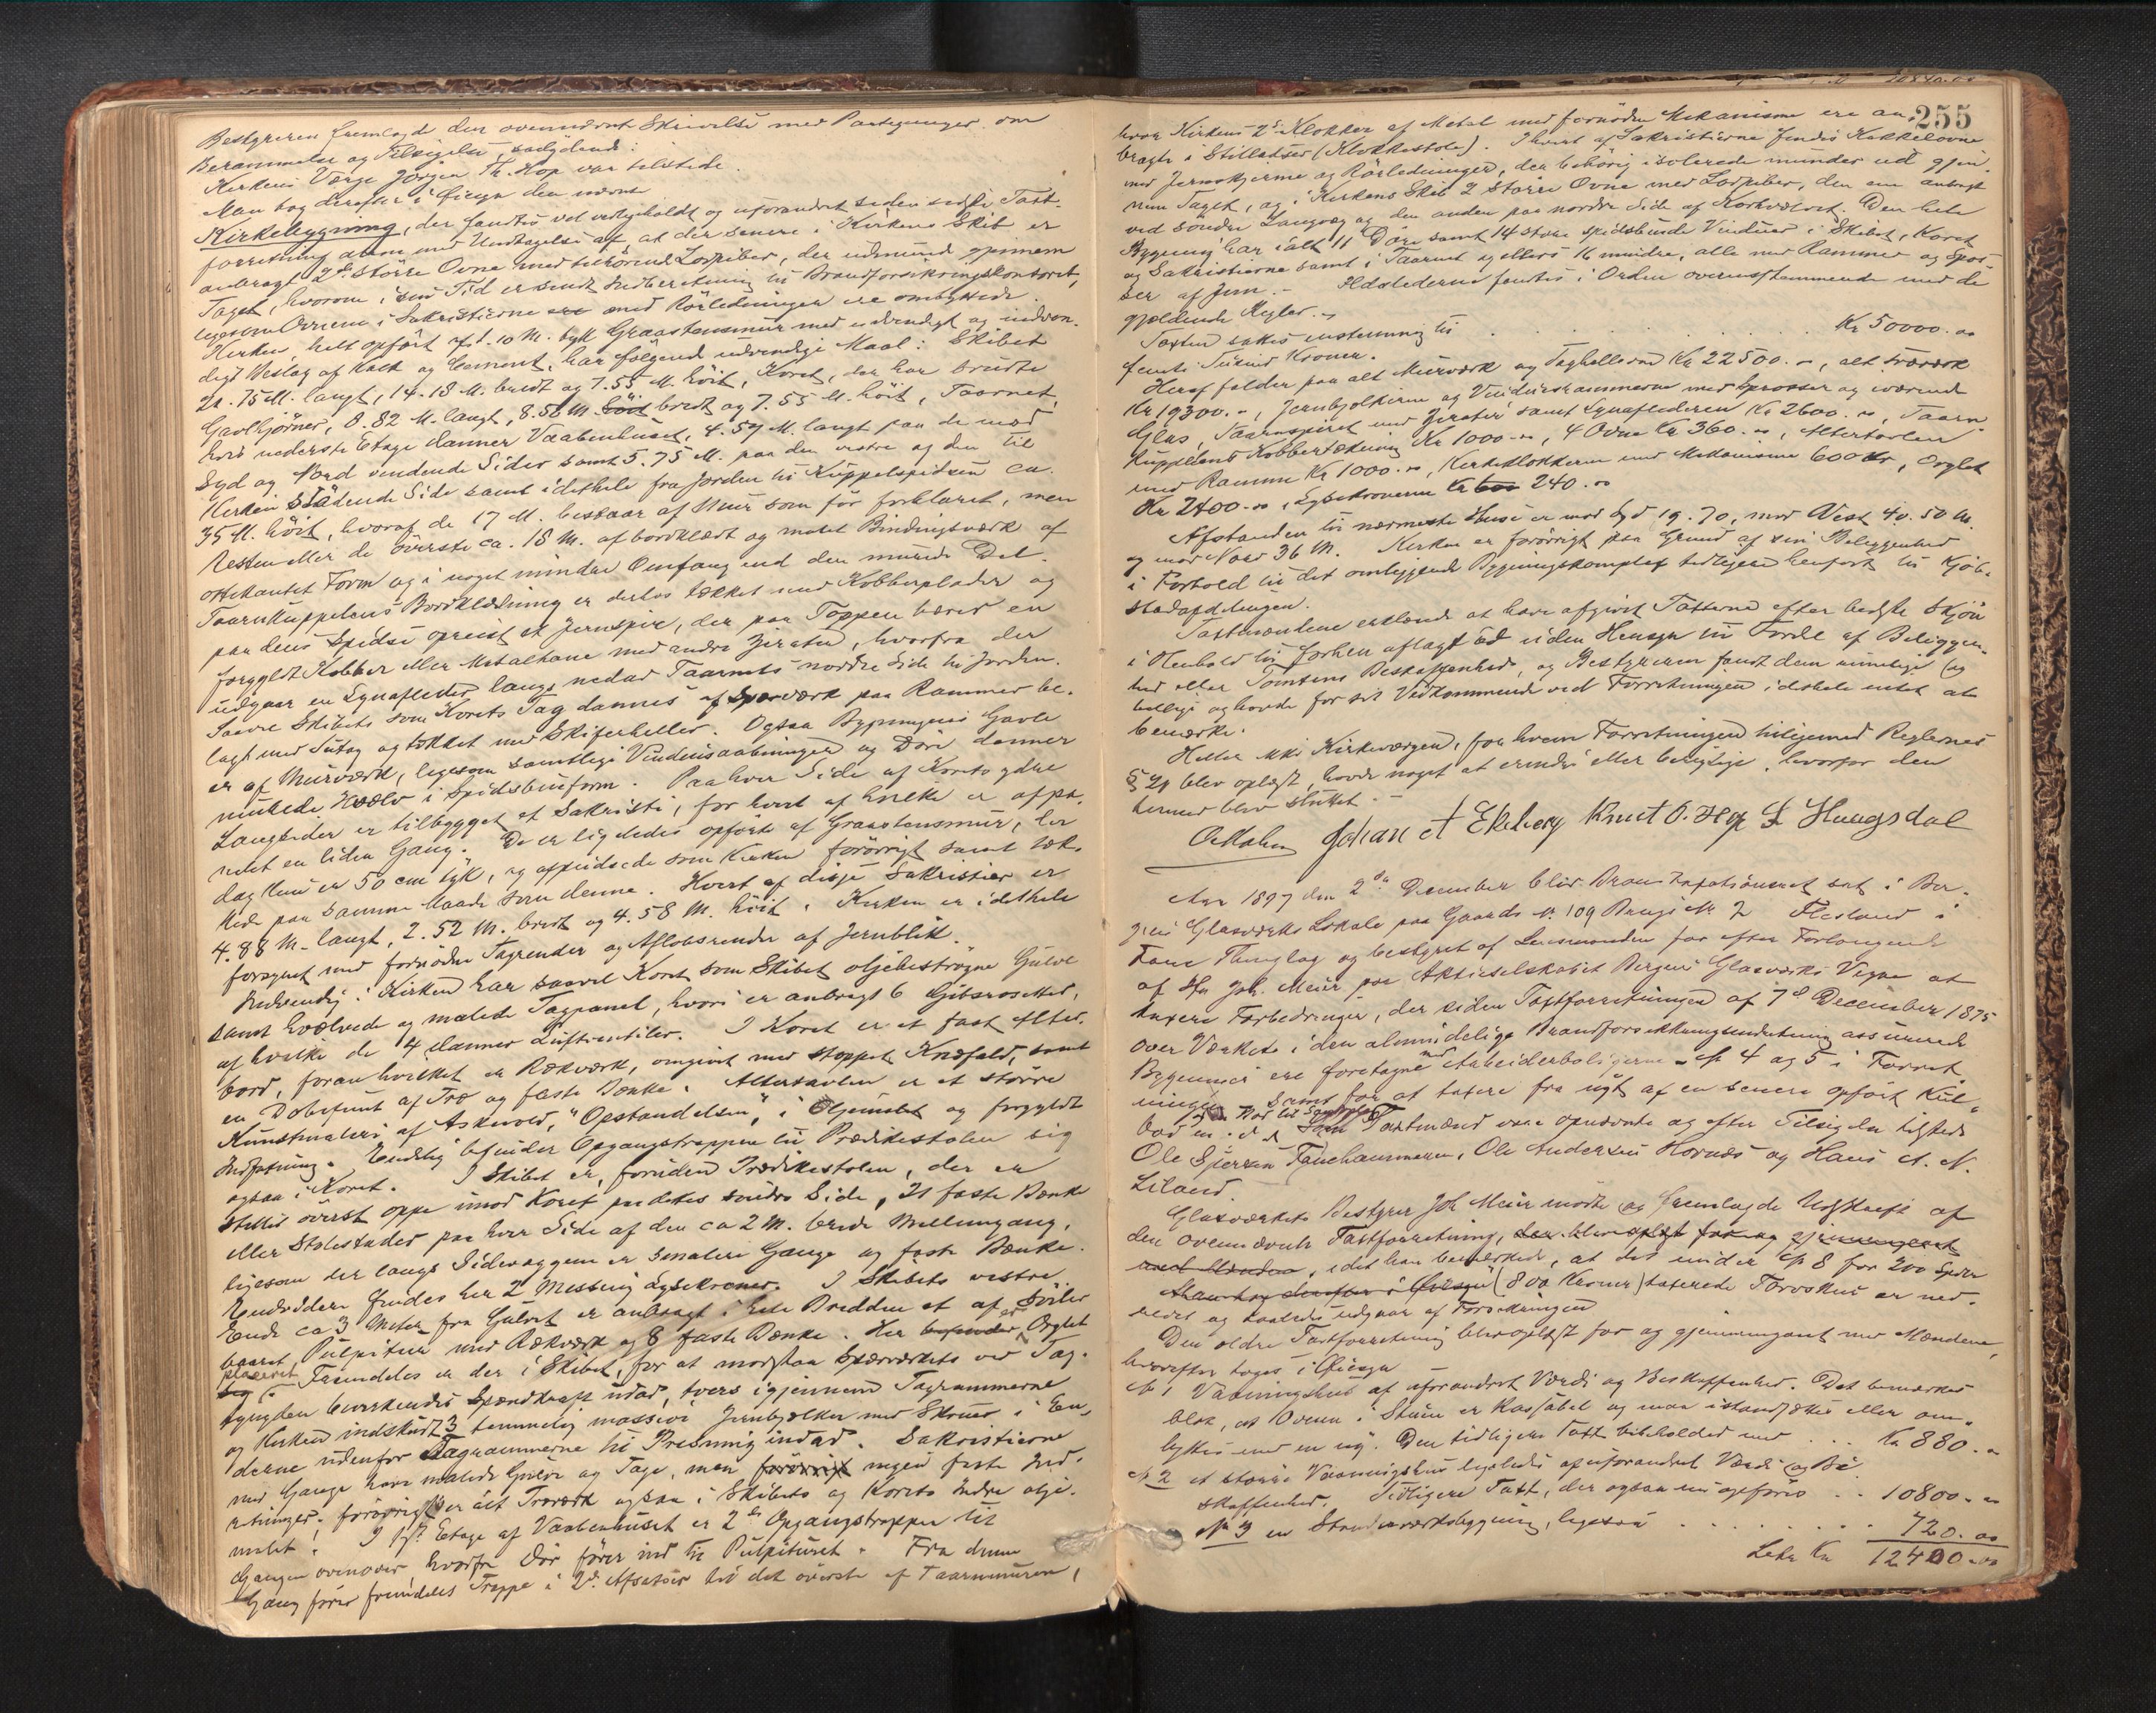 Bestyreren fremlagde den ovennævnte Skrivelse med Paategninger om
Berammelse og Tilsigelse saalydende:
Kirkens Værge Jørgen Th. Hop var tilstede.
Man tog derefter i Øiesyn den nævnte
Kirkebygning, der fandtes vel vedligeholdt og uforandret siden sidste Taxt-
forretning alene med Undtagelse af, at der senere i Kirkens Skib er
anbragt 2de større Ovne med tilhørende Lodpiber, der udmunde gjennem
Taget, hvorom i sin Tid er sendt Indberetning til Brandforsikringskontoret,
ligesom Ovnene i Sakristierne med Rörledninger ere ombyttede.
Kirken, helt opført af 1.10 M. tyk Graastensmur med udvendigt og indven-
digt Beslag af Kalk og Cement, har følgende udvendige Maal: Skibet
21.75 M. langt, 14.18 M. bredt og 7.55 M. høit, Koret, der har brudte
Gavlhjørner, 8.82 M. langt, 8.56 M. høit bredt og 7.55 M. høit, Taarnet,
hvis nederste Etage danner Vaabenhuset, 4.59 M. langt paa de mod
Syd og Nord vendende Sider samt 5.75 M. paa den vestre og den til
Kirken stødende Side samt i dethele fra Jorden til Kuppelspidsen ca.
35 M. höit, hvoraf de 17 M. bestaar af Muur som før forklaret, men
Resten eller de överste ca. 18 M. af bordklædt og malet Bindingsværk af
ottekantet Form og i noget mindre Omfang end den murede Del.
Taarnkuppelens Bordklædning er derhos tækket med Kobberplader og
paa dens Spidse opreist et Jernspir, der paa Toppen bærer en
forgyldt Kobber eller Metalhane med andre Zirater, hvorfra der
udgaar en Lynafleder langs nedad Taarnets nordre Side til Jorden.
Saavel Skibets som Korets Tag dannes af Spærværk paa Rammer be-
lagt med Sutag og tækket med Skiferheller. Ogsaa Bygningens Gavle
er af Murværk, ligesom samtlige Vinduesaabninger og Döre danner
murede Hvælv i Spidsbueform. Paa hver Side af Korets ydre
Langsider er tilbygget et Sakristi, for hvert af hvilke er afpa-
nelet en liden Gang. De er ligeledes opförte af Graastensmur, der
dog kun er 50 cm tyk, og afpudsede som Kirken forövrigt samt tæk-
ked paa samme Maade som denne. Hvert af disse Sakristier er
4.88 M. langt, 2.52 M. bredt og 4.58 M. höit. Kirken er i dethele
forsynet med fornödne Tagrender og Aflöbsrender af Jernblik.
Indvendig: Kirken har saavel Koret som Skibet oljebestrøgne Gulve
samt hvælvede og malede Tagpanel, hvori er anbragt 6 Gibsrosetter,
af hvilke de 4 danner Luftventiler. I Koret er et fast Alter-
bord, foran hvilket er Rækværk, omgivet med stoppet Knæfald, samt
en Döbefunt af Træ og faste Bænke. Altertavlen er et större
Kunstmaleri af Askevold, "Opstandelsen", i Oljemalet og forgyldt
Indfatning. Endelig befinder Opgangstrappen til Prædikestolen sig
ogsaa i Koret. I Skibet er, foruden Prædikestolen, der er
stillet överst oppe imod Koret paa dets söndre Side, 21 faste Bænke
eller Stolestader paa hver Side af den ca 2 M. brede Mellemgang,
ligesom der langs Sidevæggene er smalere Gange og faste Bænke.
Endvidere findes her 2 Messing Lysekroner. I Skibets vestre
Ende ca 3 Meter fra Gulvet er anbragt i hele Bredden et af Söiler
baaret Pulpitur med Rækværk og 8 faste Bænke. Her befinder er Orglet
sig placeret. Fremdeles er der i Skibet, for at modstaa Spærværkets ved Tag-
tyngden beroende Spændkraft udad, tvers igjennem Tagrammerne
og Kirken indskudt 3 temmelig massive Jernbjelker med Skruer i En-
derne udenfor Tagrammerne til Presning indad. Sakristierne
med Gange have malede Gulve og Tage, men forövrigt ingen faste Ind-
retninger; forövrigt er alt Træværk ogsaa i Skibets og Korets Indre olje-
malet. I 1ste Etage af Vaabenhuset er 2de Opgangstrapper til
Gangen ovenover, hvorfra Dör förer ind til Pulpituret. Fra denne
Gang förer fremdeles Trappe i 2de Afsatser til det överste af Taarnmuren,
255
hvor Kirkens 2de Klokker af Metal med fornödne Mekanisme ere an-
bragte i Stilladser (Klokkestole). I hvert af Sakristierne findes Kakkelovne
med Jernskjerme og Rörledninger, der behörig isolerede munder ud gjen-
nem Taget, og i Kirkens Skib 2 större Ovne med Lodpiber, den ene anbragt
ved söndre Langvæg og den anden paa nordre Side af Korhvælvet. Den hele
Bygning har ialt 11 Döre samt 14 store spidsbuede Vinduer i Skibet, Koret
og Sakristierne samt i Taarnet og ellers 16 mindre, alle med Rammer og Spros-
ser af Jern. Ildstederne fandtes i Orden overensstemmende med de
gjældende Regler.
Taxten sattes enstemmig til . . . . . . Kr 50000.00
femti Tusind Kroner.
Heraf falder paa alt Murværk og Taghellerne Kr 22500.-, alt Træværk
Kr 19300.-, Jernbjelkerne og Vinduesrammerne med Sprosser og iværende
Glas, Taarnspiret med Zirater samt Lynaflederen Kr 2600.00, Taarn-
kuppelens Kobbertækning Kr 1000.00, 4 Ovne Kr 360.00, Altertavlen
med Ramme Kr 1000.00, Kirkeklokkerne med Mekanisme 600 Kr, Orglet
Kr 2400.00, Lysekronerne Kr 600 240.00
Afstanden til nærmeste Huse er mod Syd 19.70, mod Vest 40.50 M.
og mod Nord 36 M. Kirken er forövrigt paa Grund af sin Beliggenhed
i Forhold til det omliggende Bygningskomplex tidligere henført til Kjöb-
stadafdelingen.
Taxtmændene erklærede at have afgivet Taxterne efter bedste Skjön
i Henhold til forhen aflagt Ed uden Hensyn til Fordel af Beliggen-
hed eller Tomtens Beskaffenhed, og Bestyreren fandt dem rimelige og
billige og havde for sit Vedkommende ved Forretningen i dethele intet at
bemærke.
Heller ikke Kirkeværgen, for hvem Forretningen ligemed Reglernes
§ 21 blev oplæst, havde noget at erindre eller beligtige, hvorfor den
hermed blev sluttet.
Johan A Ekeberg Knut O. Hop L Haugsdal
Aar 1897 den 2den December blev Brandtaxationsret sat i Ber-
gens Glasværks Lokale paa Gaards Nr. 109 Brugs Nr. 2 Flesland i
Fane Thinglag og bestyret af Lensmanden for efter Forlangende
af Hr Joh. Meier paa Aktieselskabet Bergens Glasværks Vegne at
taxere Forbedringer, der siden Taxtforretningen af 7de December 1875
over Værkets i den almindelige Brandforsikringsindretning assurerede
Bygninger ere foretagne med Arbeiderboligerne No 4 og 5 i Forret-
ningen samt for at taxere fra nyt af en senere opført Kul-
bod m. v. Som Taxtmænd vare opnævnte og efter Tilsigelse tilstede
Ole Spersen Fanehammeren, Ole Andersen Hornæs og Hans A. N.
Liland.
Glasværkets Bestyrer Joh Meier mødte og fremlagde Udskrift af
den ovennævnte Taxtforretning, der blev oplæst for og gjennemgaaet
med Mændene, idet han bemærkede, at det under No 8 for 200 Spdlr
Man tog derefter i Øiesyn (800 Kroner) taxerede Torvskur er ned-
revet og saaledes udgaar af Forsikringen
Den ældre Taxtforretning blev oplæst for og gjennemgaaet med Mændene,
hvorefter toges i Øiesyn
No 1 Vaaningshus af uforandret Værdi og Beskaffenhed. Det bemærkes
blot, at Ovnen i Stuen er kassabel og maa istandsættes eller om-
byttes med en ny. Den tidligere Taxt bibeholdes med . . . Kr 880.00
No 2 et större Vaaningshus ligeledes af uforandret Værdi og Be-
skaffenhed. Tidligere Taxt, der ogsaa nu opføres . . 10800.00
No 3 en Standværksbygning, ligesaa . . . . . 720.00
Latr Kr 12400.00